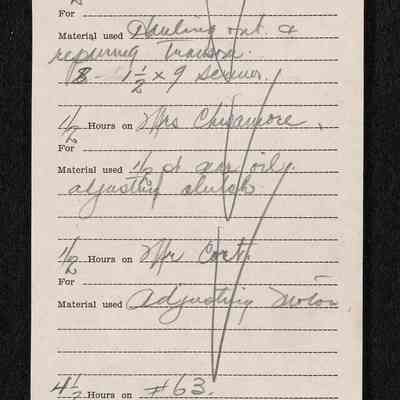 For
Material used Hauling out &
repairing Transom.
8 - 1 1/2 x 9 screws.
1/2 Hours on Mrs Chisamore.
For
Material used 1/2 pt gear oil.
adjusting clutch
1/2 Hours on Mr Cort.
For
Material used Adjusting Motor.
4 1/2 Hours on #63.